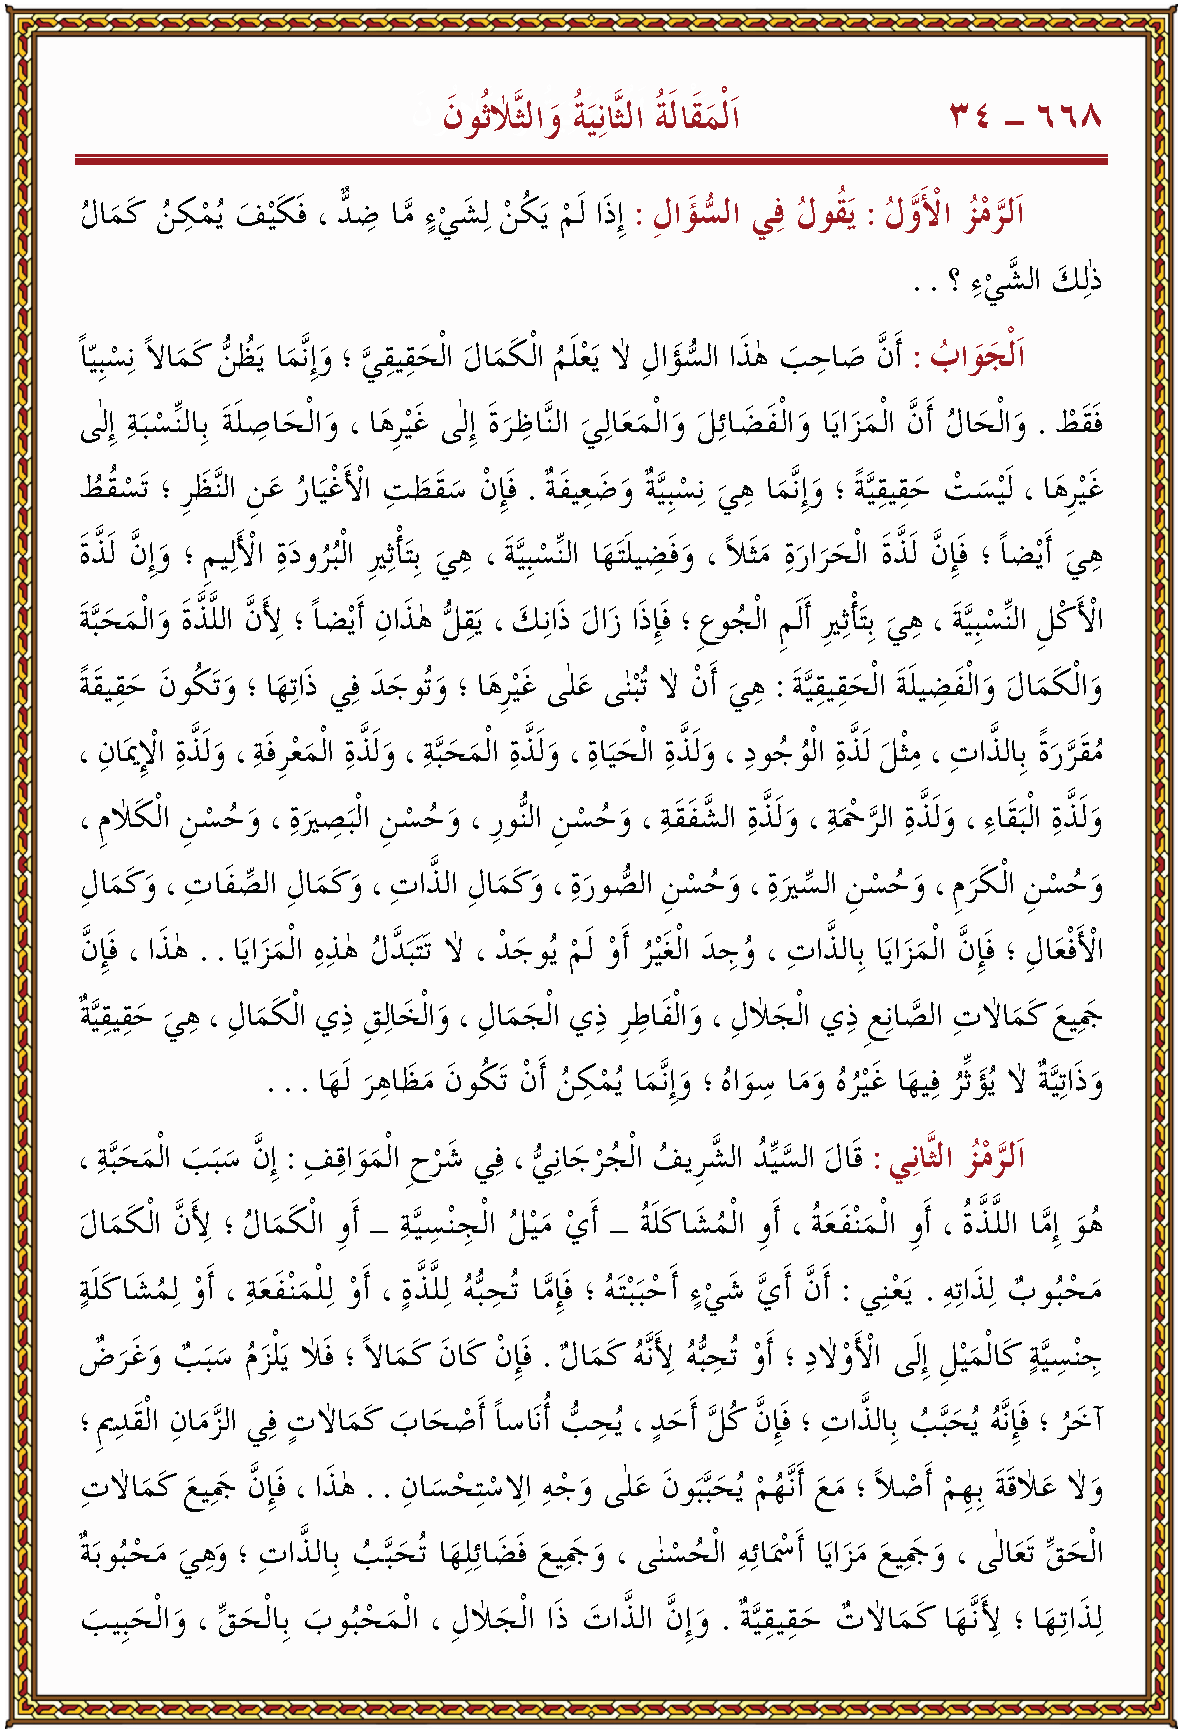 ٦٦٨ – ٣٤ اَلْمَقَالَةُ الثَّانِيَةُ وَالثَّلٰاثُونَ
اَلرَّمْزُ الْأَوَّلُ : يَقُولُ فِي السُّؤَالِ : إِذَا لَمْ يَكُنْ لِشَيْءٍ مَّا ضِدٌّ ، فَكَيْفَ يُمْكِنُ كَمَالُ
ذٰلِكَ الشَّيْءِ ؟ . .
اَلْجَوَابُ : أَنَّ صَاحِبَ هٰذَا السُّؤَالِ لاٰ يَعْلَمُ الْكَمَالَ الْحَقِيقِيَّ ؛ وَإِنَّمَا يَظُنُّ كَمَالاً نِسْبِيّاً
فَقَطْ . وَالْحَالُ أَنَّ الْمَزَايَا وَالْفَضَائِلَ وَالْمَعَالِيَ النَّاظِرَةَ إِلٰى غَيْرِهَا ، وَالْحَاصِلَةَ بِالنِّسْبَةِ إِلٰى
غَيْرِهَا ، لَيْسَتْ حَقِيقِيَّةً ؛ وَإِنَّمَا هِيَ نِسْبِيَّةٌ وَضَعِيفَةٌ . فَإِنْ سَقَطَتِ الْأَغْيَارُ عَنِ النَّظَرِ ؛ تَسْقُطُ
هِيَ أَيْضاً ؛ فَإِنَّ لَذَّةَ الْحَرَارَةِ مَثَلاً ، وَفَضِيلَتَهَا النِّسْبِيَّةَ ، هِيَ بِتَأْثِيرِ الْبُرُودَةِ الْأَلِيمِ ؛ وَإِنَّ لَذَّةَ
الْأَكْلِ النِّسْبِيَّةَ ، هِيَ بِتَأْثِيرِ أَلَمِ الْجُوعِ ؛ فَإِذَا زَالَ ذَانِكَ ، يَقِلُّ هٰذَانِ أَيْضاً ؛ لِأَنَّ اللَّذَّةَ وَالْمَحَبَّةَ
وَالْكَمَالَ وَالْفَضِيلَةَ الْحَقِيقِيَّةَ : هِيَ أَنْ لاٰ تُبْنٰى عَلٰى غَيْرِهَا ؛ وَتُوجَدَ فِي ذَاتِهَا ؛ وَتَكُونَ حَقِيقَةً
مُقَرَّرَةً بِالذَّاتِ ، مِثْلَ لَذَّةِ الْوُجُودِ ، وَلَذَّةِ الْحَيَاةِ ، وَلَذَّةِ الْمَحَبَّةِ ، وَلَذَّةِ الْمَعْرِفَةِ ، وَلَذَّةِ الْإِيمَانِ ،
وَلَذَّةِ الْبَقَاءِ ، وَلَذَّةِ الرَّحْمَةِ ، وَلَذَّةِ الشَّفَقَةِ ، وَحُسْنِ النُّورِ ، وَحُسْنِ الْبَصِيرَةِ ، وَحُسْنِ الْكَلاٰمِ ،
وَحُسْنِ الْكَرَمِ ، وَحُسْنِ السِّيرَةِ ، وَحُسْنِ الصُّورَةِ ، وَكَمَالِ الذَّاتِ ، وَكَمَالِ الصِّفَاتِ ، وَكَمَالِ
الْأَفْعَالِ ؛ فَإِنَّ الْمَزَايَا بِالذَّاتِ ، وُجِدَ الْغَيْرُ أَوْ لَمْ يُوجَدْ ، لاٰ تَتَبَدَّلُ هٰذِهِ الْمَزَايَا . . هٰذَا ، فَإِنَّ
جَمِيعَ كَمَالاٰتِ الصَّانِعِ ذِي الْجَلاٰلِ ، وَالْفَاطِرِ ذِي الْجَمَالِ ، وَالْخَالِقِ ذِي الْكَمَالِ ، هِيَ حَقِيقِيَّةٌ
وَذَاتِيَّةٌ لاٰ يُؤَثِّرُ فِيهَا غَيْرُهُ وَمَا سِوَاهُ ؛ وَإِنَّمَا يُمْكِنُ أَنْ تَكُونَ مَظَاهِرَ لَهَا . . .
اَلرَّمْزُ الثَّانِي : قَالَ السَّيِّدُ الشَّرِيفُ الْجُرْجَانِيُّ ، فِي شَرْحِ الْمَوَاقِفِ : إِنَّ سَبَبَ الْمَحَبَّةِ ،
هُوَ إِمَّا اللَّذَّةُ ، أَوِ الْمَنْفَعَةُ ، أَوِ الْمُشَاكَلَةُ – أَيْ مَيْلُ الْجِنْسِيَّةِ – أَوِ الْكَمَالُ ؛ لِأَنَّ الْكَمَالَ
مَحْبُوبٌ لِذَاتِهِ . يَعْنِي : أَنَّ أَيَّ شَيْءٍ أَحْبَبْتَهُ ؛ فَإِمَّا تُحِبُّهُ لِلَّذَّةٍ ، أَوْ لِلْمَنْفَعَةِ ، أَوْ لِمُشَاكَلَةٍ
جِنْسِيَّةٍ كَالْمَيْلِ إِلَى الْأَوْلاٰدِ ؛ أَوْ تُحِبُّهُ لِأَنَّهُ كَمَالٌ . فَإِنْ كَانَ كَمَالاً ؛ فَلاٰ يَلْزَمُ سَبَبٌ وَغَرَضٌ
آخَرُ ؛ فَإِنَّهُ يُحَبُّ بِالذَّاتِ ؛ فَإِنَّ كُلَّ أَحَدٍ ، يُحِبُّ أُنَاساً أَصْحَابَ كَمَالاٰتٍ فِي الزَّمَانِ الْقَدِيمِ ؛
وَلاٰ عَلاٰقَةَ بِهِمْ أَصْلاً ؛ مَعَ أَنَّهُمْ يُحَبَّبُونَ عَلٰى وَجْهِ الاِسْتِحْسَانِ . . هٰذَا ، فَإِنَّ جَمِيعَ كَمَالاٰتِ
الْحَقِّ تَعَالٰى ، وَجَمِيعَ مَزَايَا أَسْمَائِهِ الْحُسْنٰى ، وَجَمِيعَ فَضَائِلِهَا تُحَبُّ بِالذَّاتِ ؛ وَهِيَ مَحْبُوبَةٌ
لِذَاتِهَا ؛ لِأَنَّهَا كَمَالاٰتٌ حَقِيقِيَّةٌ . وَإِنَّ الذَّاتَ ذَا الْجَلاٰلِ ، الْمَحْبُوبَ بِالْحَقِّ ، وَالْحَبِيبَ